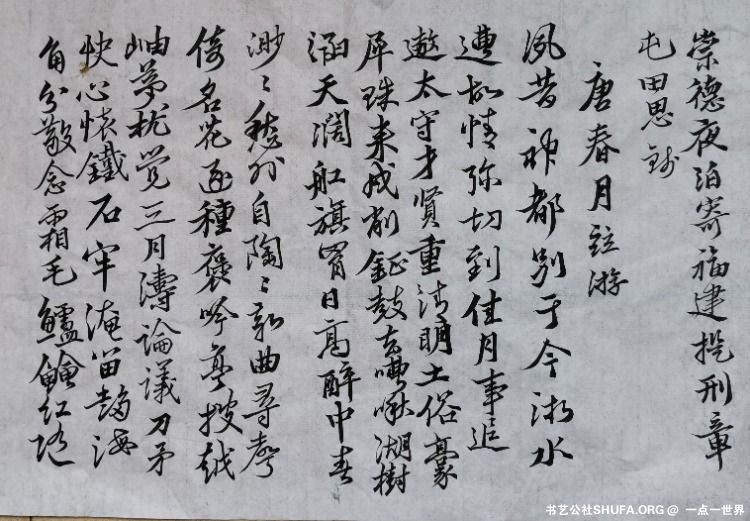 崇德夜泊寄福建提刑章
屯田思錢
唐春月並游
夙昔神都别于今浙水
遭故情弥切到佳月事追
遨太守才賢重清明土俗豪
犀珠来戍削鉦鼓去啾湖樹
涵天濶舡旗冐日高醉中春
渺〻愁外自陶〻新曲尋聲
倚名花逐種褒吟亭披越
岫夢枕覺胥濤論議刀矛
快心懷鐵石牢淹留趍海
角分散念霜毛鱸鱠紅隨
书艺公社SHUFA.ORG @ 一点一世界